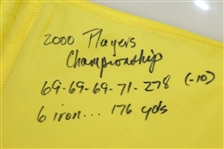 2000 Players
Championship
69-69-69-71-278 (-10)
6 iron... 176 yds